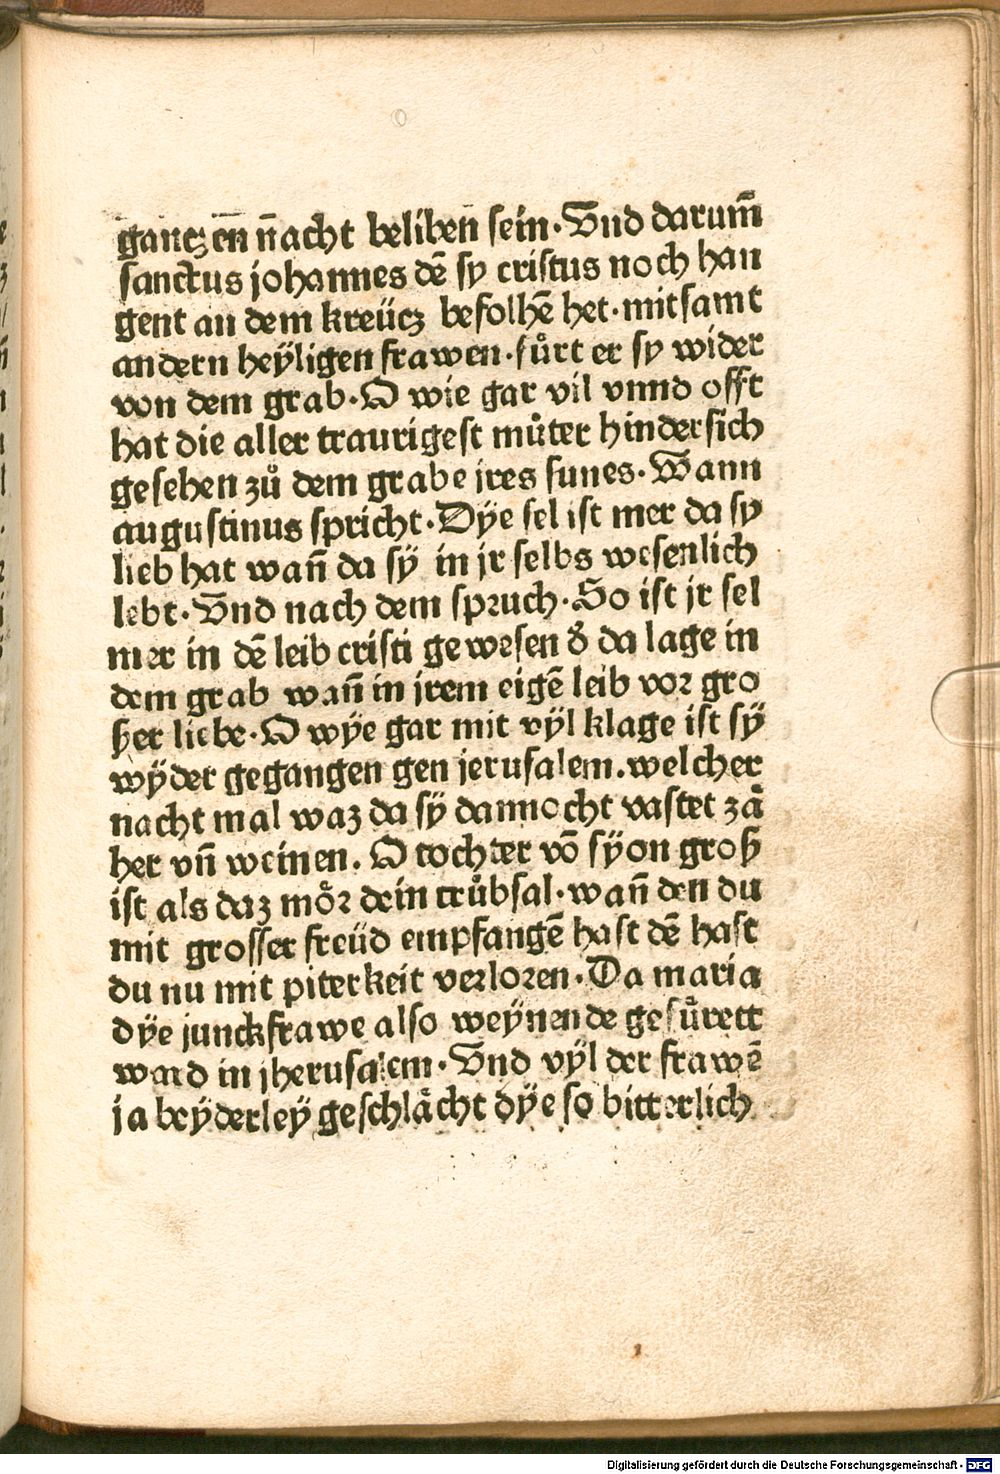 gantz en n̄acht beliben sein·Vnd darum̄
sanctus johannes dē sy cristus noch han
gent an dem kreücz befolhē het·mitsamt
andern heÿligen frawen·fůrt er sy wider
von dem grab·O wie gar vil vnnd offt
hat die aller traurigest můter hindersich
gesehen zů dem grabe jres sunes·Wann
augustinus spricht·Dÿe sel ist mer da sy
lieb hat wan̄ da sÿ in jr selbs wesenlich
lebt·Vnd nach dem spruch·So ist jr sel
mer in dē leib cristi gewesen d̓ da lage in
dem grab wan̄ in jrem eigē leib vor gro
ßer liebe·O wÿe gar mit vÿl klage ist sÿ
wÿder gegangen gen jerusalem.welcher
nacht mal waz da sÿ dannocht vastet zä
her vn̄ weinen. O tochter vō sÿon groß
ist als daz moͤr dein truͤbsal·wan̄ den du
mit grosser freüd empfangē hast dē hast
du nu mit piterkeit verloren·Da maria
dÿe junckfrawe also weÿnende gefuͤrett
ward in jherusalem·Vnd vÿl der frawē
ja beÿderleÿ geschlaͤcht dÿe so bitterlich
Digitalisierung gefördert durch die Deutsche Forschungsgemeinschaft - DFG